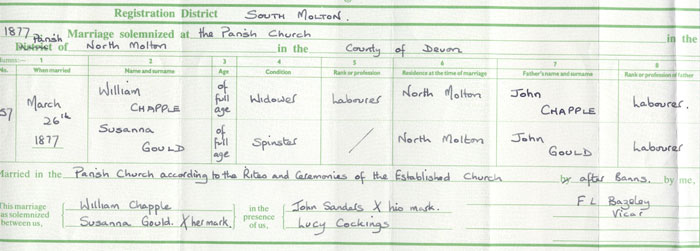 Registration District South Molton.
1877 Marriage solemnized at the Parish Church in the
Parish District of North Molton in the County of Devon
1 2 3 4 5 6 7 8
No. When married Name and surname Age Condition Rank or profession Residence at the time of marriage Father's name and surname Rank or profession of father
57 March 26th 1877 William CHAPPLE of full age Widower Labourer North Molton John CHAPPLE Labourer.
Susanna GOULD of full age Spinster / North Molton John GOULD Labourer
Married in the Parish Church according to the Rites and Ceremonies of the Established Church by after Banns. by me,
This marriage was solemnized between us, William Chapple in the presence of us, John Sandals X his mark. F L Bazeley
Susanna Gould. X her mark. Lucy Cockings Vicar